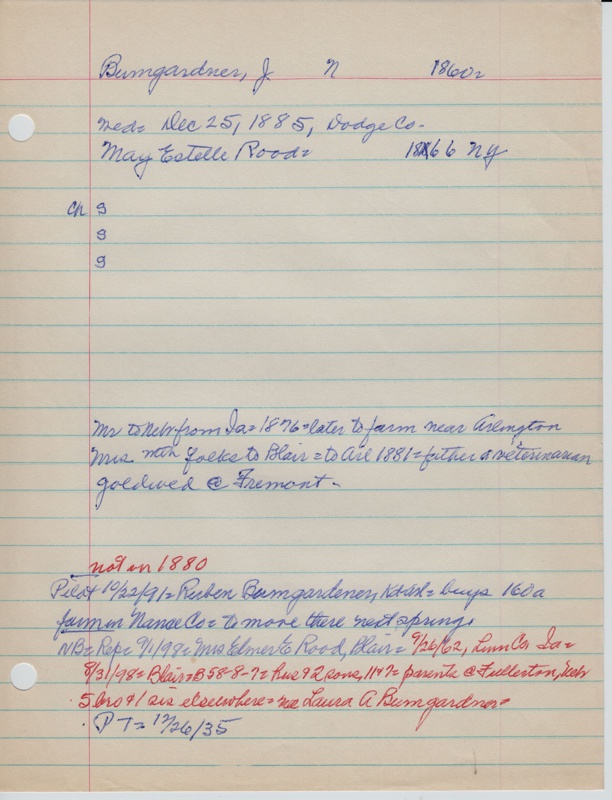 Bumgardner, J. N 1860=
wed= Dec 25, 1885, Dodge Co-
May Estelle Rood= 1866 NY
ch 9
9
9
Mr to Nebr from Ia= 1876= later to farm near Arlington
Mrs with folks to Blair= to Arl 1881= father a veterinarian
goldwed @ Fremont-
not in 1880
Pilot 10/22/91= Ruben Bumgardener, buys 160a
farm in Nance Co= to move there next spring.
NB= Rep= 9/1/98= Mrs Elmer E Rood, Blair= 9/26/62, Linn Co Ia=
8/31/98= Blair= B 58-8-7= hus & 2 sons, 11 & 7= parents @ Fullerton, Neb
5 bro & 1 sis elsewhere= nee Laura A Bumgardner=
PT= 12/26/35